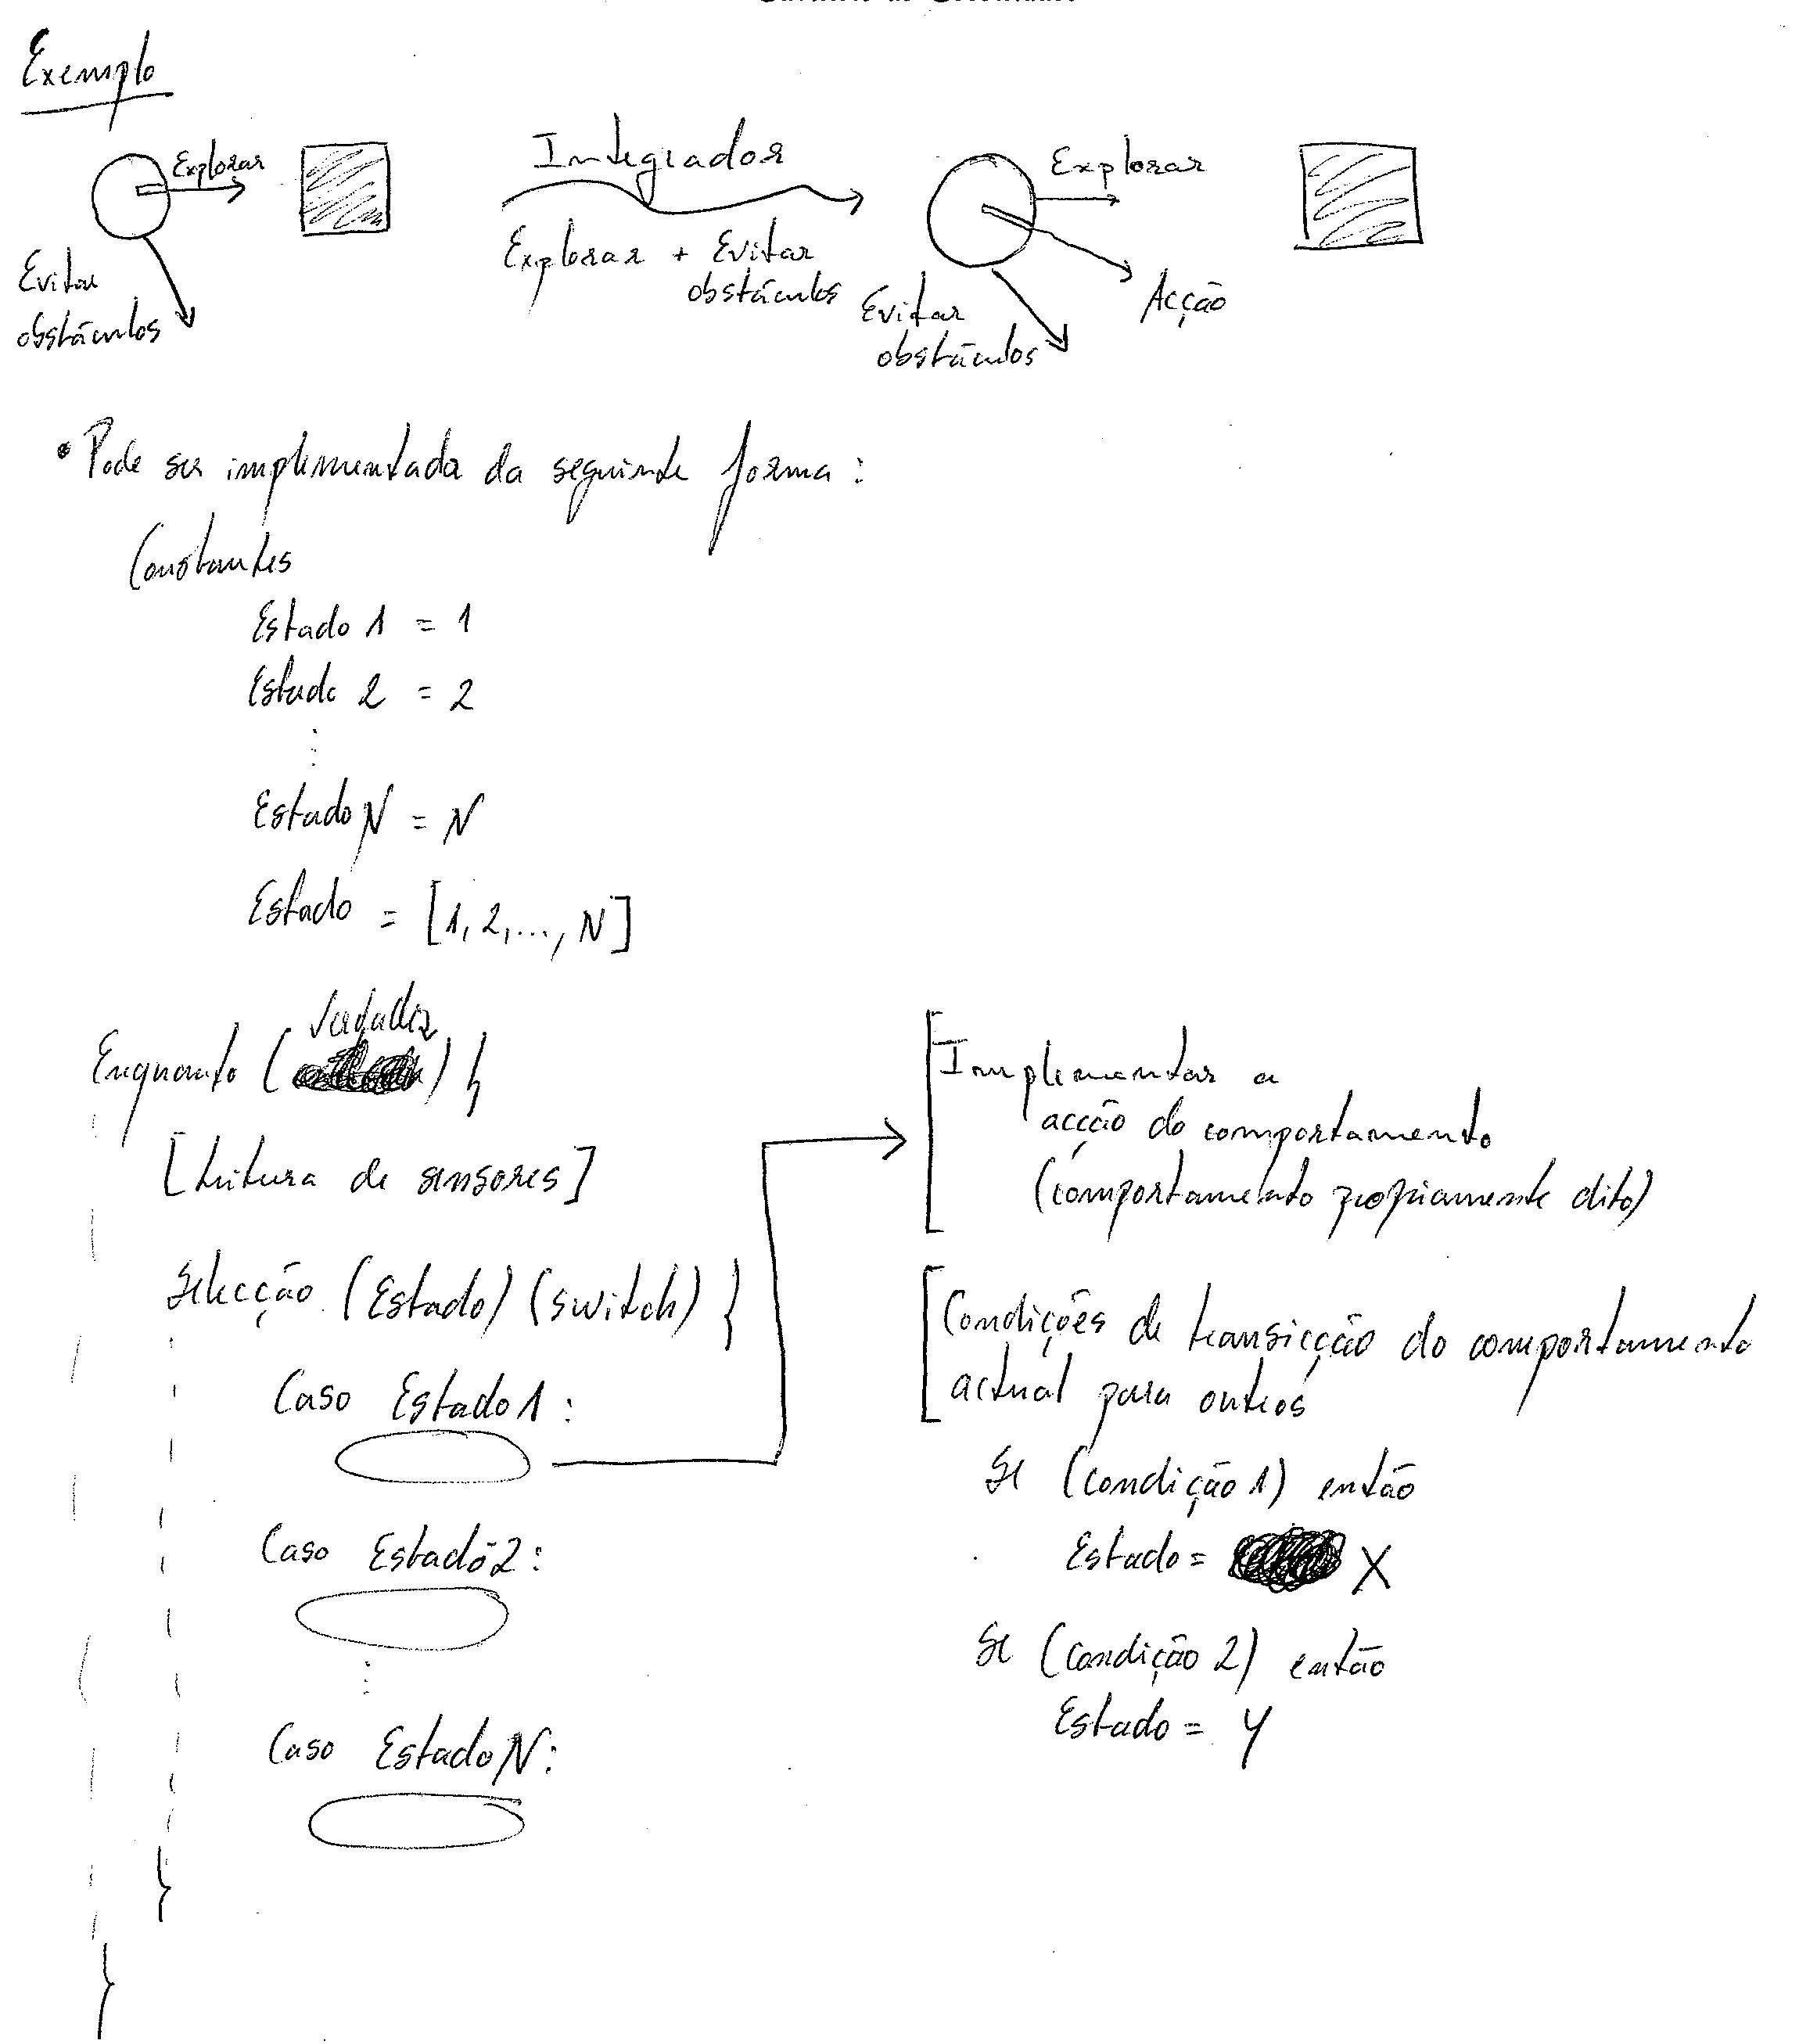 Exemplo
Explorar
Evitar
obstáculos
Integrador
Explorar + Evitar
obstáculos
Explorar
Acção
Evitar
obstáculos
• Pode ser implementada da seguinte forma:
Constantes
Estado 1 = 1
Estado 2 = 2
⋮
Estado N = N
Estado = [1, 2, ..., N]
Enquanto ( ) {
[Leitura de sensores]
Selecção (Estado) (switch) {
Caso Estado 1:
Caso Estado 2:
⋮
Caso Estado N:
}
}
Implementar a
acção do comportamento
(comportamento propriamente dito)
Condições de transicção do comportamento
actual para outros
Se (condição 1) então
Estado = X
Se (condição 2) então
Estado = Y